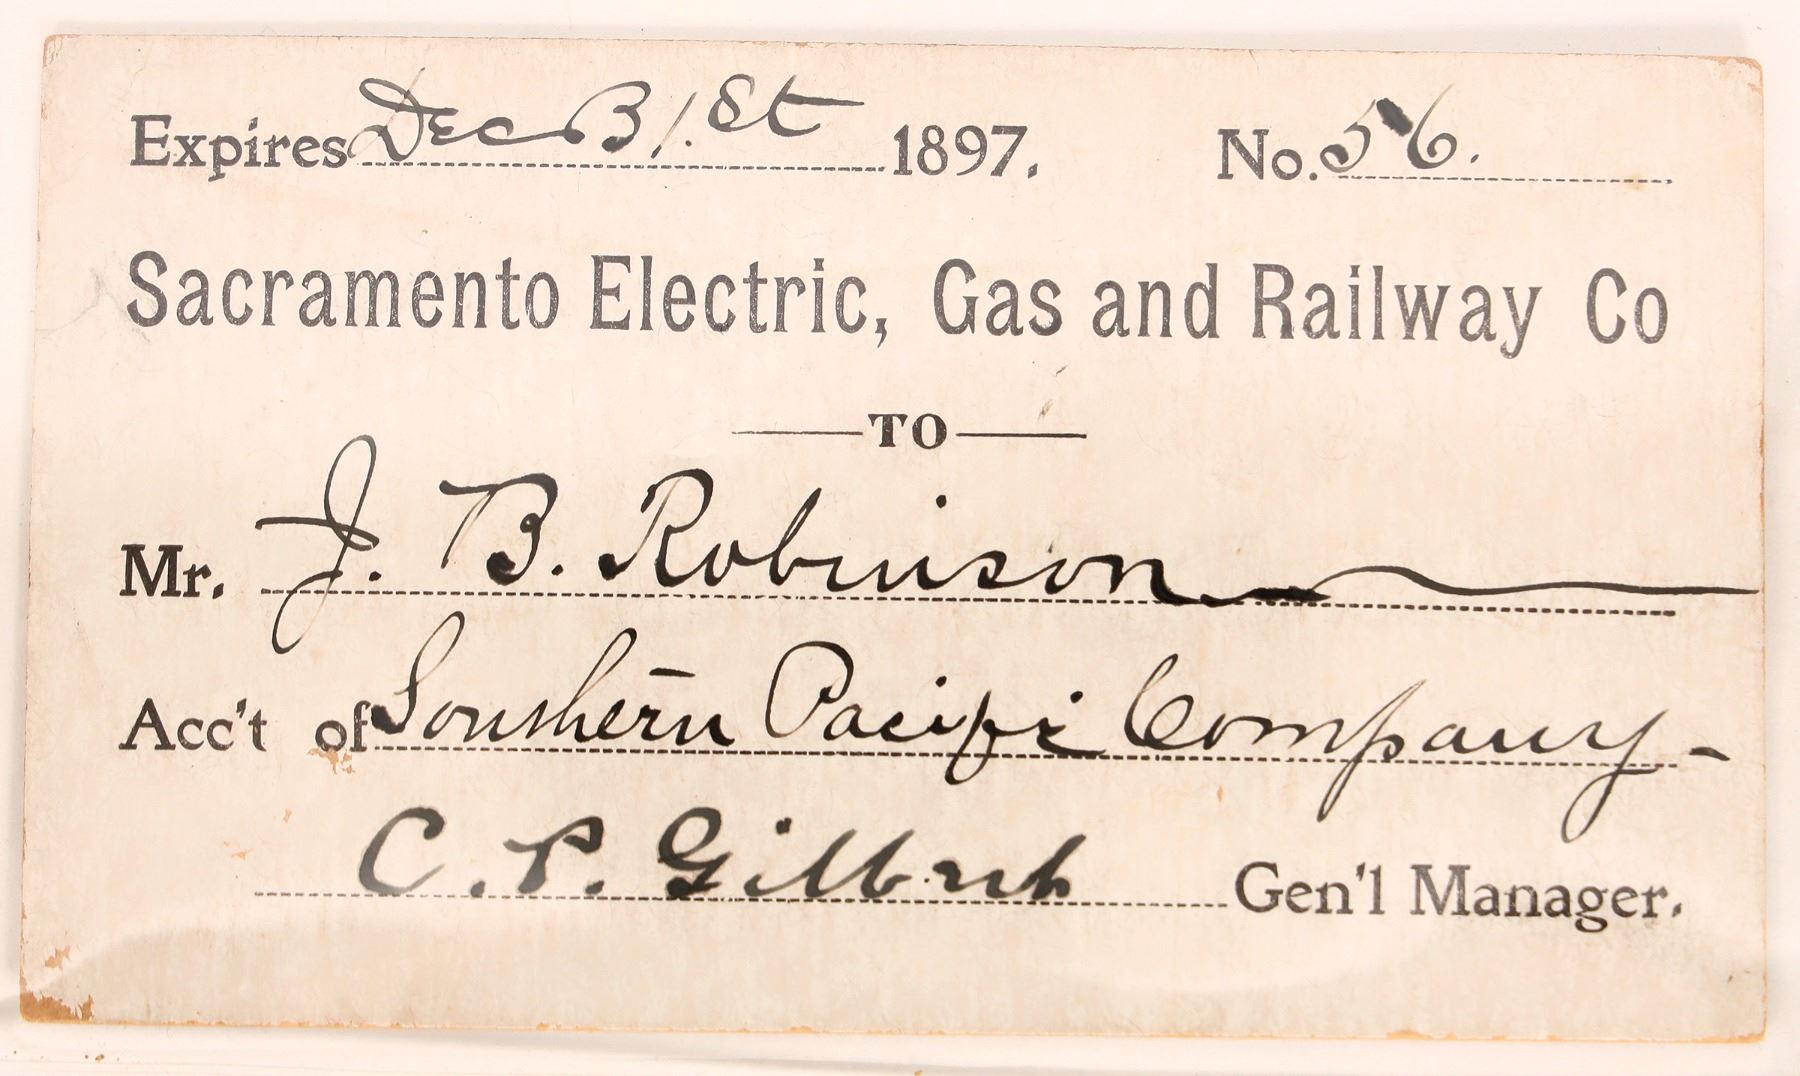 Expires Dec 31.st 1897. No. 56.
Sacramento Electric, Gas and Railway Co
TO
Mr. J. B. Robinson
Acc't of Southern Pacific Company
C. P. Gilbert Gen'l Manager.